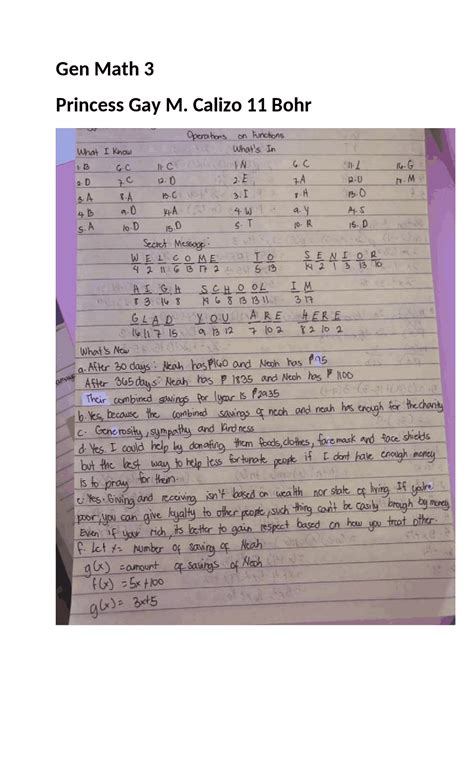 Gen Math 3
Princess Gay M. Calizo 11 Bohr
Operations on Functions
What I Know What's In
1. B 6. C 11. C 1. N 6. C 11. L 16. G
2. D 7. C 12. D 2. E 7. A 12. U 17. M
3. A 8. A 13. C 3. I 8. H 13. O
4. B 9. D 14. A 4. W 9. Y 14. S
5. A 10. D 15. D 5. T 10. R 15. D
Secret Message:
W E L C O M E T O S E N I O R
4 2 11 6 13 17 2 5 13 14 2 1 3 13 10
H I G H S C H O O L I M
8 3 16 8 14 6 8 13 13 11 3 17
G L A D Y O U A R E H E R E
16 11 7 15 9 13 12 7 10 2 8 2 10 2
What's New
a. After 30 days: Neah has ₱160 and Neoh has ₱95
After 365 days: Neah has ₱ 1835 and Neoh has ₱ 1100
Their combined savings for 1 year is ₱2935
b. Yes, because the combined savings of neoh and neah has enough for the charity
c. Generosity, sympathy and kindness
d. Yes. I could help by donating them foods, clothes, face mask and face shields
but the best way to help less fortunate people if I dont have enough money
is to pray for them.
e. Yes. Giving and receiving isn't based on wealth nor state of living. If you're
poor, you can give loyalty to other people, such thing cant be easily brough by money
Even if your rich, its better to gain respect based on how you treat other.
f. Let x= number of saving of Neah
g(x) =amount of savings of Neoh
f(x) =5x+100
g(x)= 3x+5